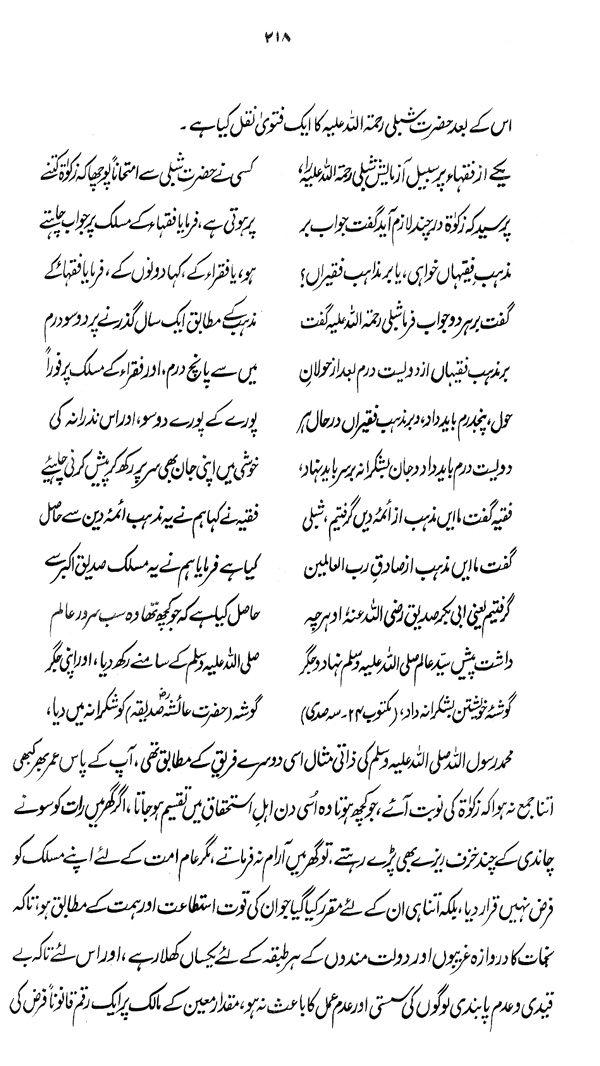 ۲۱۸
اس کے بعد حضرت شبلی رحمۃ اللہ علیہ کا ایک فتویٰ نقل کیا ہے ۔
یکے از فقہاء بر سبیل آزمایش شبلی رحمۃ اللہ علیہ را،
پرسید کہ زکوٰۃ در چند لازم آید گفت جواب بر
مذہب فقیہاں خواہی، یا بر مذاہب فقیراں؟
گفت بر ہر دو جواب فرما شبلی رحمۃ اللہ علیہ گفت
بر مذہب فقیہاں از دویست درم بعد از حولانِ
حول، پنجدرم باید داد، و بر مذہب فقیراں در حال ہر
دویست درم باید داد و جان بشکرانہ بر سر باید نہاد،
فقیہ گفت ما ایں مذہب از أئمۂ دیں گرفتیم، شبلی
گفت ما ایں مذہب از صادقِ رب العالمین
گرفتیم یعنی ابی بکر صدیق رضی اللہ عنہٗ او ہر چہ
داشت پیش سیّد عالم صلی اللہ علیہ وسلم نہاد و جگر
گوشۂ خویشتن بشکرانہ داد، (مکتوب ۲۴ - سہ صدی)
کسی نے حضرت شبلی سے امتحاناً پوچھا کہ زکوٰۃ کتنے
پر ہوتی ہے، فرمایا فقہاء کے مسلک پر جواب چاہتے
ہو، یا فقراء کے، کہا دونوں کے، فرمایا فقہاء کے
مذہب کے مطابق ایک سال گذرنے پر دو سو درم
میں سے پانچ درم، اور فقراء کے مسلک پر فوراً
پورے کے پورے دو سو، اور اس نذرانہ کی
خوشی میں اپنی جان بھی سر پر رکھ کر پیش کرنی چاہئیے
فقیہ نے کہا ہم نے یہ مذہب ائمۂ دین سے حاصل
کیا ہے فرمایا ہم نے یہ مسلک صدیق اکبر سے
حاصل کیا ہے کہ جو کچھ تھا وہ سب سرور عالم
صلی اللہ علیہ وسلم کے سامنے رکھ دیا، اور اپنی جگر
گوشہ (حضرت عائشہ صدیقہؓ) کو شکرانہ میں دیا،
محمد رسول اللہ صلی اللہ علیہ وسلم کی ذاتی مثال اسی دوسرے فریق کے مطابق تھی، آپ کے پاس عمر بھر کبھی
اتنا جمع نہ ہوا کہ زکوٰۃ کی نوبت آئے، جو کچھ ہوتا وہ اُسی دن اہلِ استحقاق میں تقسیم ہو جاتا، اگر گھر میں رات کو سونے
چاندی کے چند خزف ریزے بھی پڑے رہتے، تو گھر میں آرام نہ فرماتے، مگر عام امت کے لئے اپنے مسلک کو
فرض نہیں قرار دیا، بلکہ اتنا ہی ان کے لئے مقرر کیا گیا جو ان کی قوت استطاعت اور ہمت کے مطابق ہو، تاکہ
نجات کا دروازہ غریبوں اور دولت مندوں کے ہر طبقہ کے لئے یکساں کھلا رہے، اور اس لئے تاکہ بے
قیدی و عدم پابندی لوگوں کی سستی اور عدم عمل کا باعث نہ ہو، مقدار معین کے مالک پر ایک رقم قانوناً فرض کی